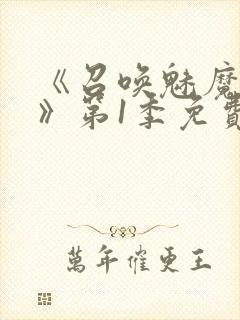 《召唤魅魔
》第1季免費
萬年催更王